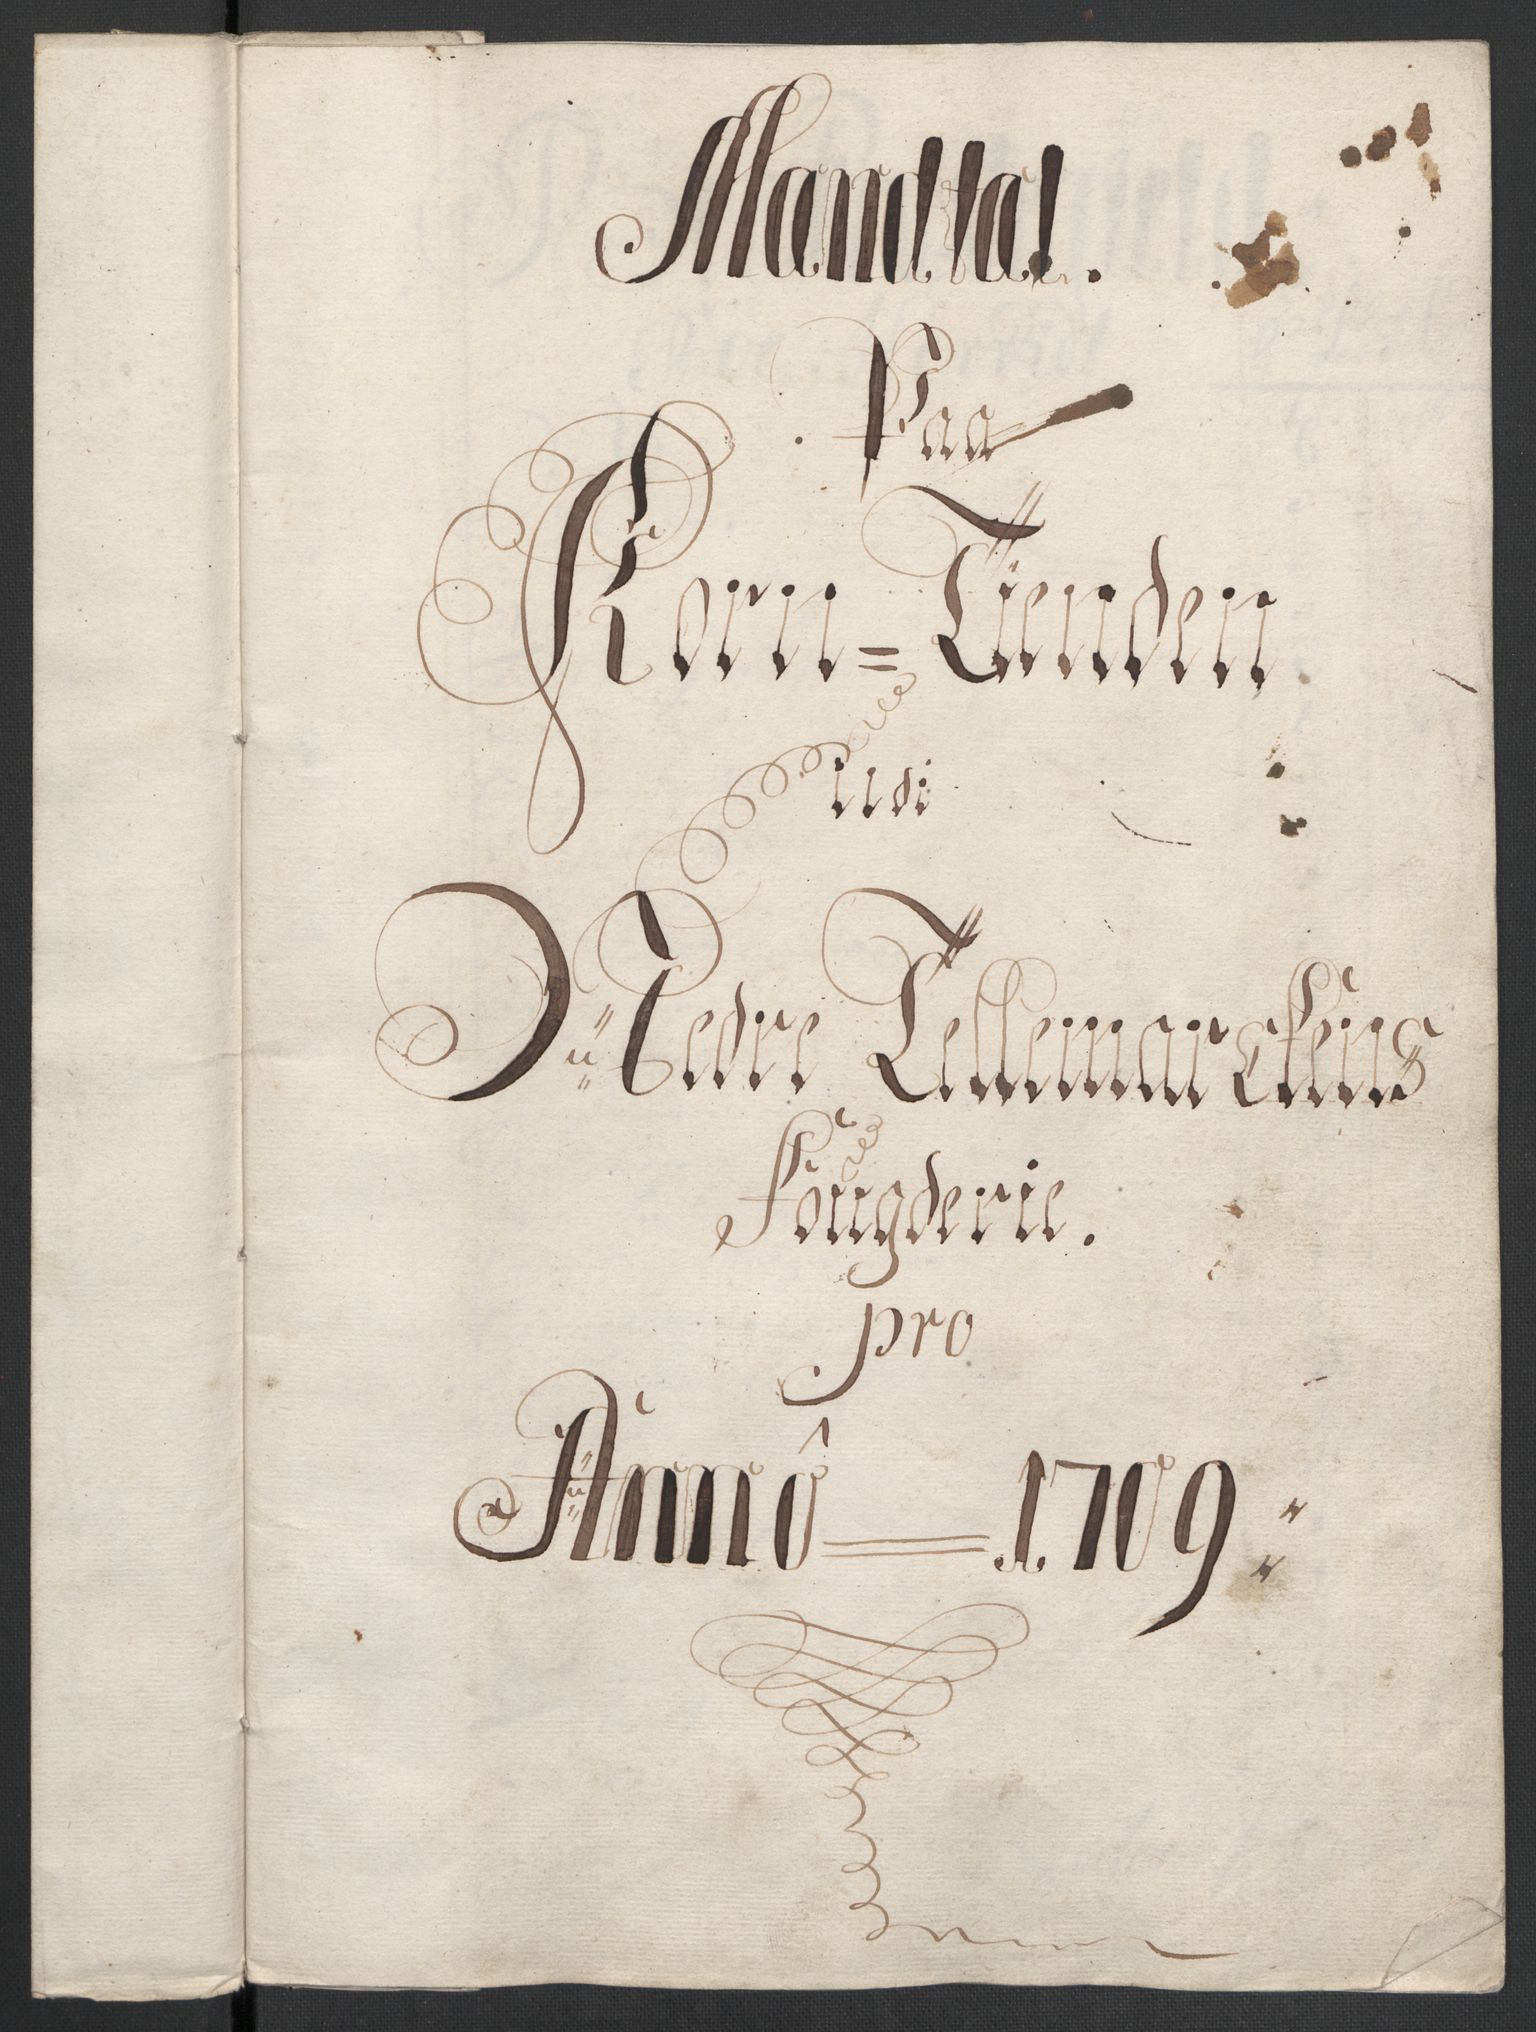 Mandtal.
Paa
Korn=Tienden
udi
Nedre Tellemarckens
Fougderie.
pro
Anno 1709